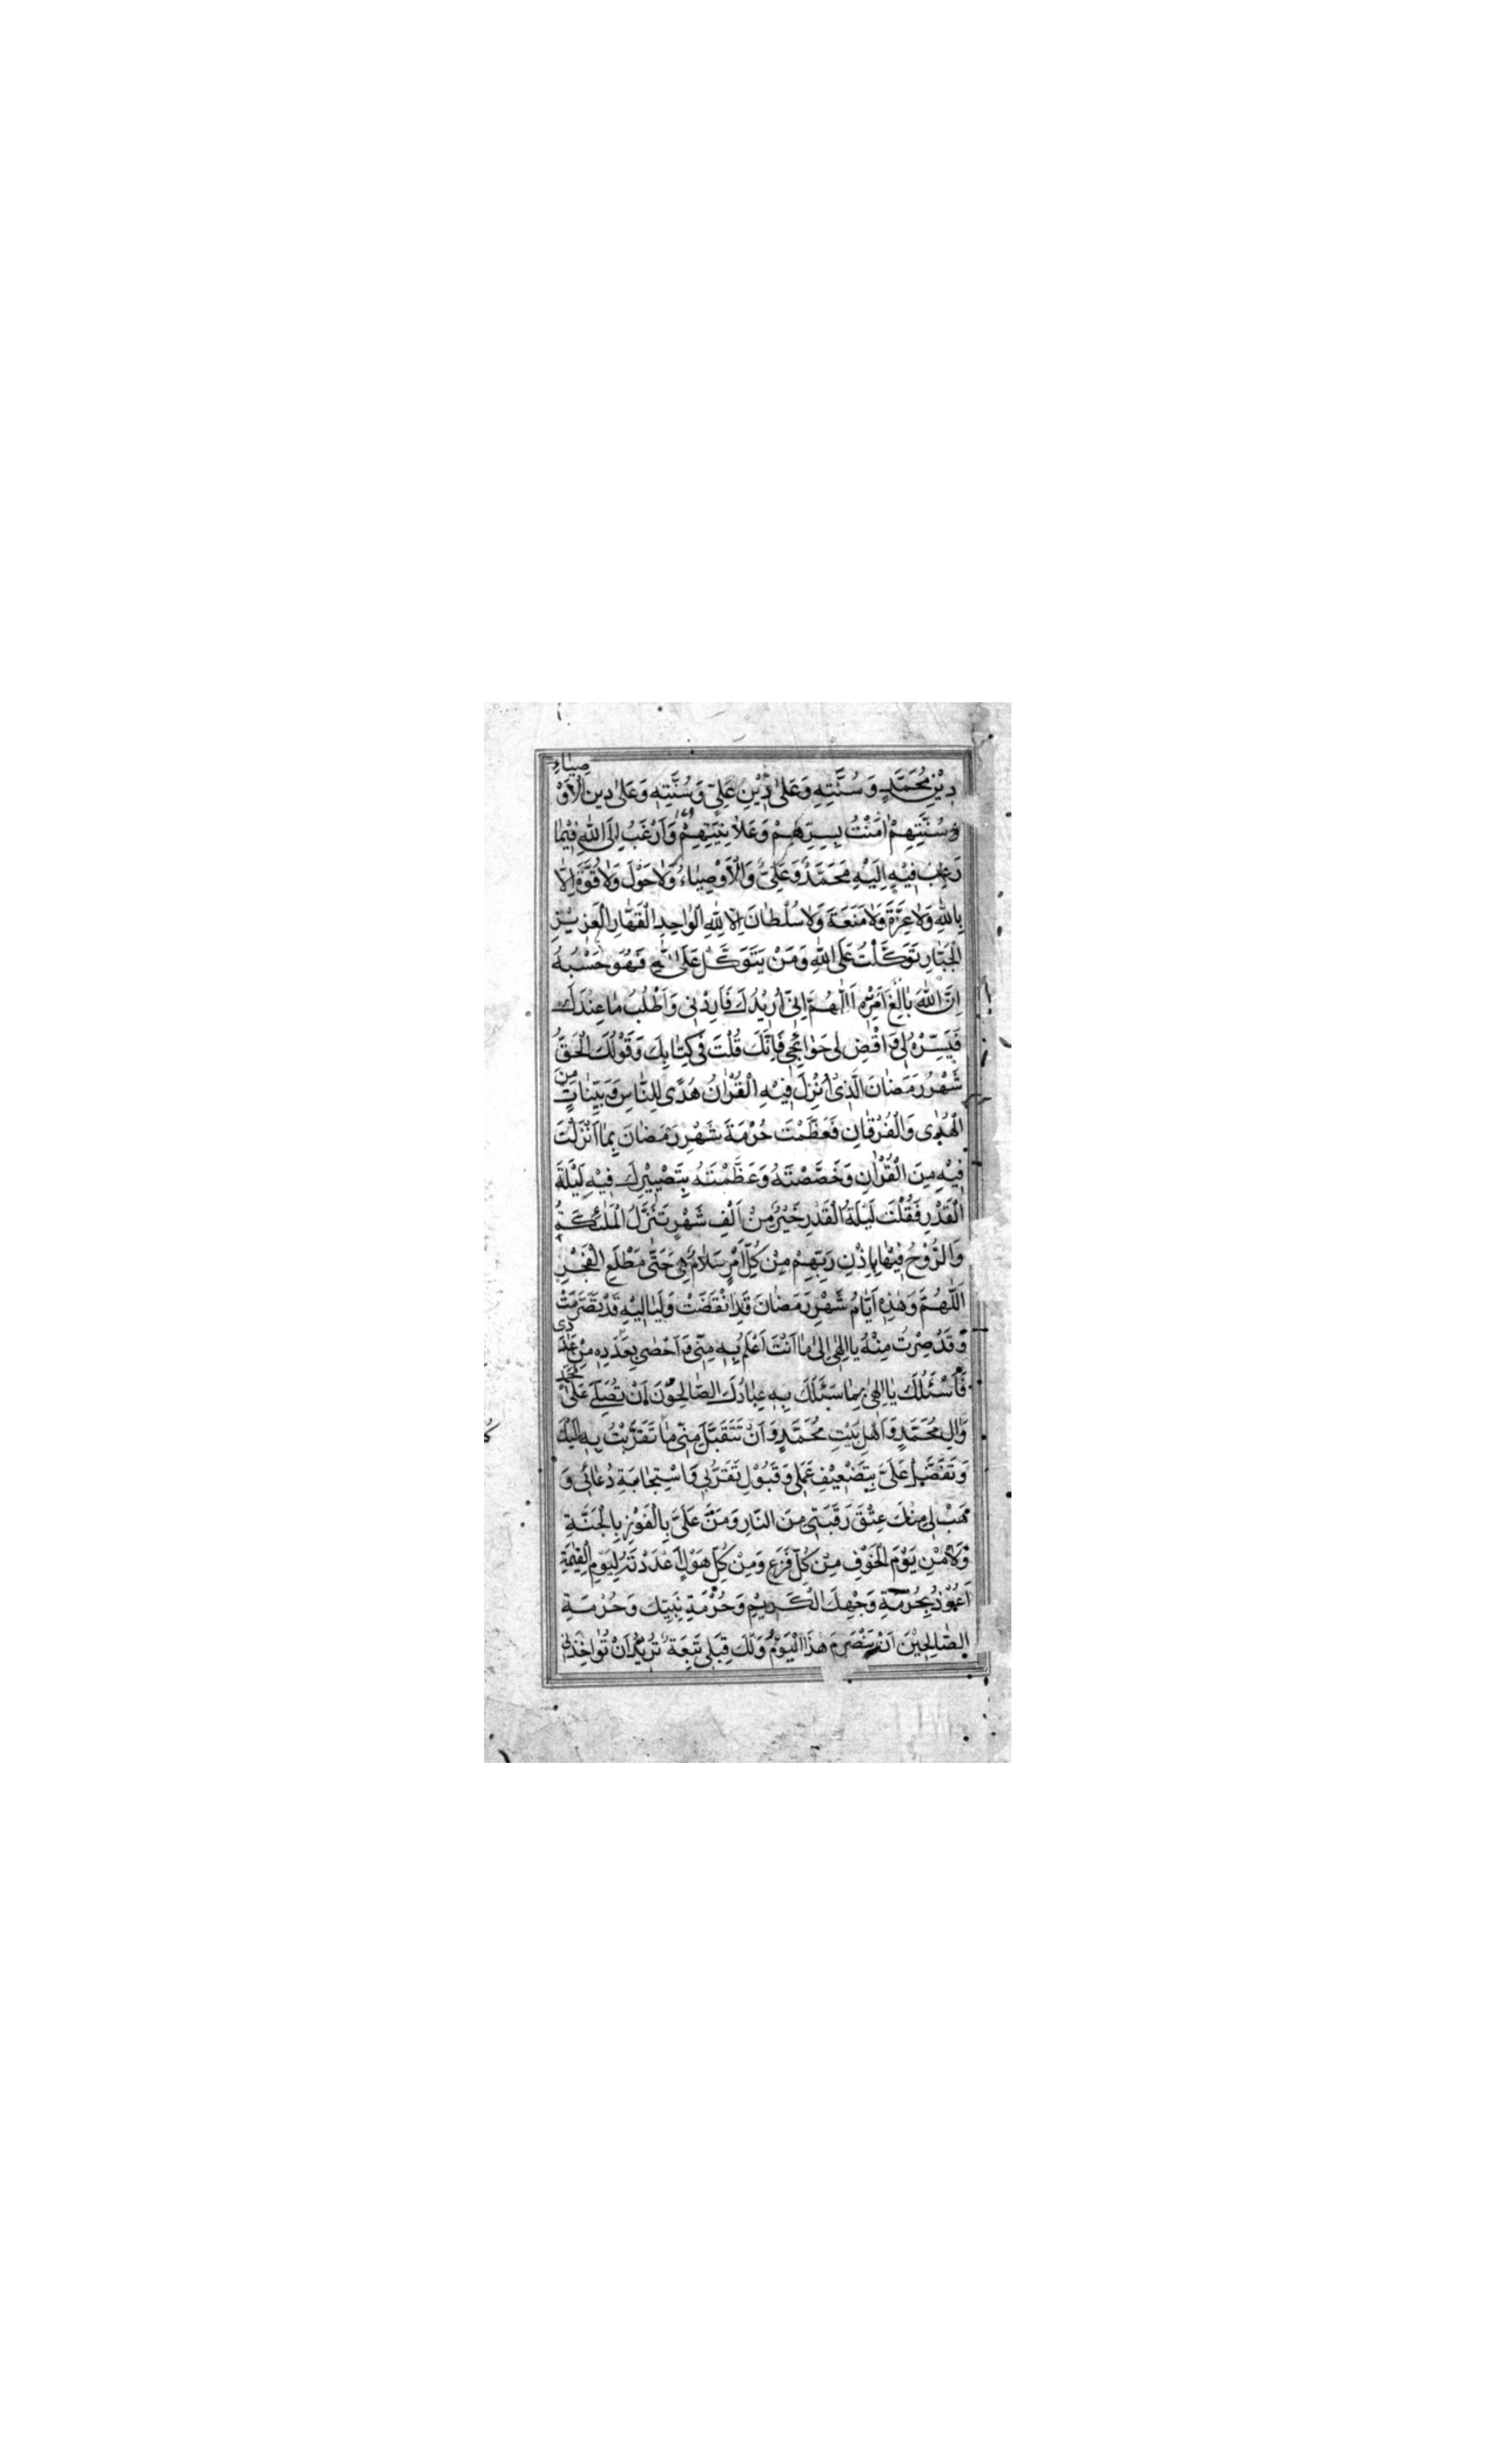 دِيْنِ مُحَمَّدٍ وَسُنَّتِهِ وَعَلىٰ دِيْنِ عَلِيٍّ وَسُنَّتِهِ وَعَلىٰ دِينِ الْاَوْصِيٰاءِ
وَسُنَّتِهِمْ اٰمَنْتُ بِسِرِّهِمْ وَعَلاٰنِيَتِهِمْ وَاَرْغَبُ اِلَى اللهِ فيْمٰا
رَغِبَ فيْهِ اِلَيْهِ مُحَمَّدٌ وَعَلِيٌّ وَالْاَوْصِيٰاءُ وَلاٰ حَوْلَ وَلاٰ قُوَّةَ اِلاّٰ
بِاللهِ وَلاٰ عِزَّةَ وَلاٰ مَنَعَةَ وَلاٰ سُلْطٰانَ اِلاّٰ لِلّٰهِ الْوٰاحِدِ الْقَهّٰارِ الْعَزيْزِ
الْجَبّٰارِ تَوَكَّلْتُ عَلَى اللهِ وَمَنْ يَتَوَكَّلْ عَلَى اللهِ فَهُوَ حَسْبُهُ
اِنَّ اللهَ بٰالِغُ اَمْرِهِ اَللّٰهُمَّ اِنّى اُريْدُكَ فَاَرِدْنى وَاَطْلُبُ مٰا عِنْدَكَ
فَيَسِّرْهُ لى وَاقْضِ لى حَوٰائِجى فَاِنَّكَ قُلْتَ فى كِتٰابِكَ وَقَوْلُكَ الْحَقُّ
شَهْرُ رَمَضٰانَ الَّذى اُنْزِلَ فيْهِ الْقُرْاٰنُ هُدًى لِلنّٰاسِ وَبَيِّنٰاتٍ مِنَ
الْهُدٰى وَالْفُرْقٰانِ فَعَظَّمْتَ حُرْمَةَ شَهْرِ رَمَضٰانَ بِمٰا اَنْزَلْتَ
فيْهِ مِنَ الْقُرْاٰنِ وَخَصَّصْتَهُ وَعَظَّمْتَهُ بِتَصْيِيْرِكَ فيْهِ لَيْلَةَ
الْقَدْرِ فَقُلْتَ لَيْلَةُ الْقَدْرِ خَيْرٌ مِنْ اَلْفِ شَهْرٍ تَنَزَّلُ الْمَلٰئِكَةُ
وَالرُّوْحُ فيْهٰا بِاِذْنِ رَبِّهِمْ مِنْ كُلِّ اَمْرٍ سَلاٰمٌ هِيَ حَتّٰى مَطْلَعِ الْفَجْرِ
اَللّٰهُمَّ وَهٰذِهِ اَيّٰامُ شَهْرِ رَمَضٰانَ قَدِ انْقَضَتْ وَلَيٰاليْهِ قَدْ تَصَرَّمَتْ
وَقَدْ صِرْتُ مِنْهُ يٰا اِلٰهى اِلىٰ مٰا اَنْتَ اَعْلَمُ بِهِ مِنّى وَاَحْصىٰ بِعَدَدِهِ مِنْ عَدَدى
فَاَسْئَلُكَ يٰا اِلٰهى بِمٰا سَئَلَكَ بِهِ عِبٰادُكَ الصّٰالِحُوْنَ اَنْ تُصَلِّيَ عَلىٰ مُحَمَّدٍ
وَاٰلِ مُحَمَّدٍ وَاَهْلِ بَيْتِ مُحَمَّدٍ وَاَنْ تَتَقَبَّلَ مِنّى مٰا تَقَرَّبْتُ بِهِ اِلَيْكَ
وَتَفَضَّلَ عَلَيَّ بِتَضْعيْفِ عَمَلى وَقَبُوْلِ تَقَرُّبى وَاسْتِجٰابَةِ دُعٰائى وَ
هَبْ لى مِنْكَ عِتْقَ رَقَبَتى مِنَ النّٰارِ وَمُنَّ عَلَيَّ بِالْفَوْزِ بِالْجَنَّةِ
وَالْاَمْنِ يَوْمَ الْخَوْفِ مِنْ كُلِّ فَزَعٍ وَمِنْ كُلِّ هَوْلٍ اَعْدَدْتَهُ لِيَوْمِ الْقِيٰمَةِ
اَعُوْذُ بِحُرْمَةِ وَجْهِكَ الْكَريْمِ وَحُرْمَةِ نَبِيِّكَ وَحُرْمَةِ
الصّٰالِحيْنَ اَنْ يَنْصَرِمَ هٰذَا الْيَوْمُ وَلَكَ قِبَلى تَبِعَةٌ تُريْدُ اَنْ تُؤاخِذَنى